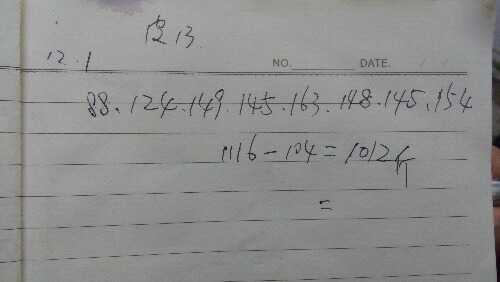 皮13.
12.1
NO. DATE.
88.124.149.145.163.148.145.154
1116-104=1012斤
=